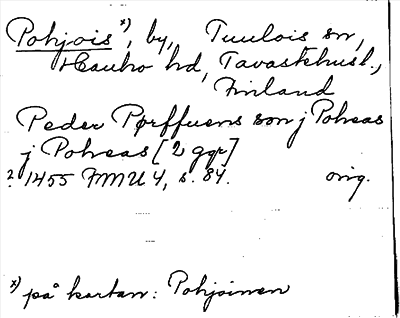 Pohjois x), by, Tuulois sn,
Hauho hd, Tavastehusl.,
Finland
Peder Pørffuens son j Poheas
j Poheas [2 ggr]
? 1455 FMU 4, s. 84. orig.
x) på kartan: Pohjoinen